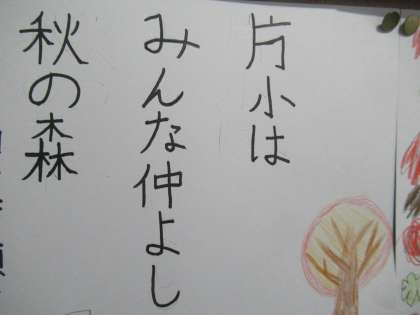 片小は
みんな仲よし
秋の森